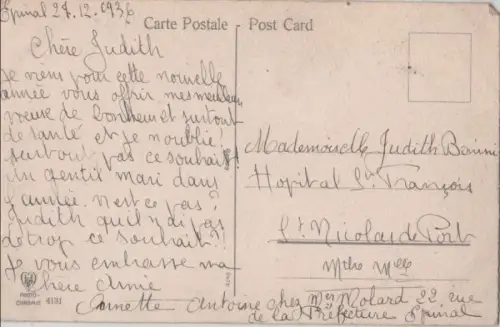 Epinal 27.12.1936
Carte Postale Post Card
Chère Judith
Je viens pour cette nouvelle
année vous offrir mes meilleurs
voeux de bonheur et surtout
de santé et je n'oublie!
surtout pas ce souhait!
Un gentil mari dans
l'année. n'est ce pas?
Judith qu'il n'ai pas
de trop ce souhait?!
Je vous embrasse ma
chère Amie
Annette Antoine chez Mr Molard 22 rue
de la Préfecture Epinal
Mademoiselle Judith
Hopital St. François
St Nicolas de Port
Mthe Mlle
PHOTO-
CHROMIE 4131